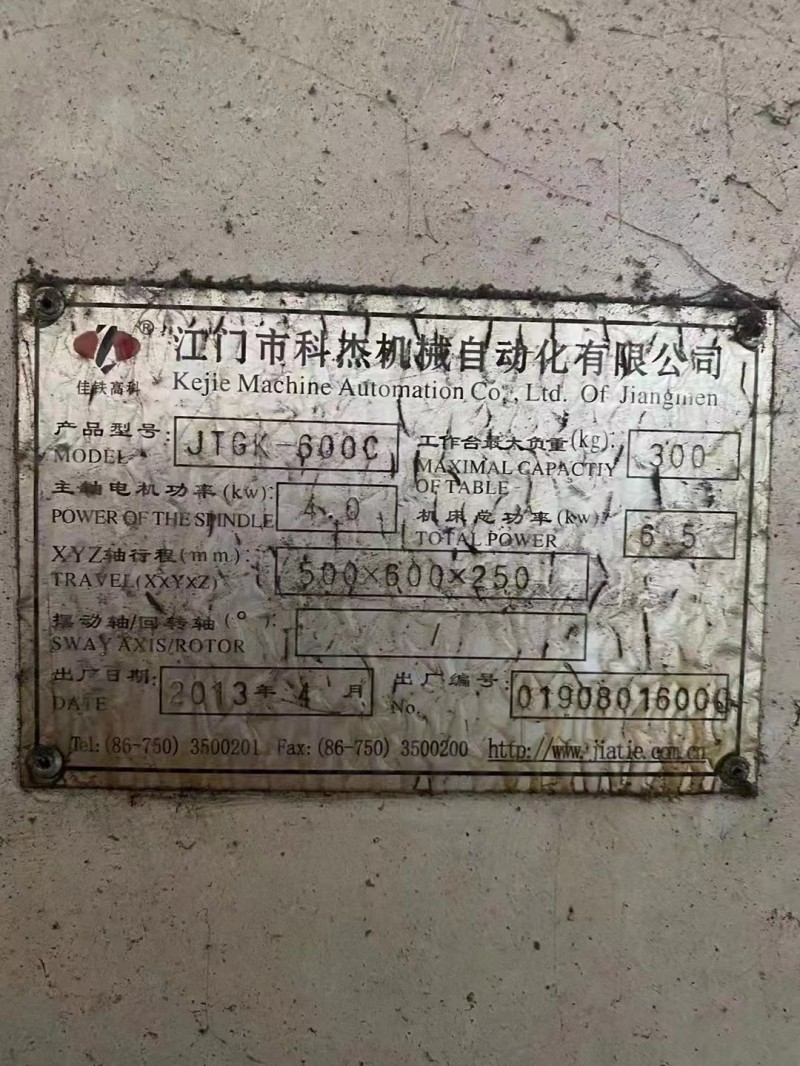 ® 江门市科杰机械自动化有限公司
佳铁高科 Kejie Machine Automation Co., Ltd. Of Jiangmen
产品型号: JTGK-600C 工作台最大负重(kg): 300
MODEL MAXIMAL CAPACTIY OF TABLE
主轴电机功率(kw): 4.0 机床总功率(kw): 6.5
POWER OF THE SPINDLE TOTAL POWER
XYZ轴行程(mm): 500×600×250
TRAVEL(XxYxZ)
摆动轴/回转轴(°): /
SWAY AXIS/ROTOR
出厂日期: 2013年 4 月 出厂编号: 01908016000
DATE No.
Tel:(86-750) 3500201 Fax:(86-750) 3500200 http://www.jiatie.com.cn